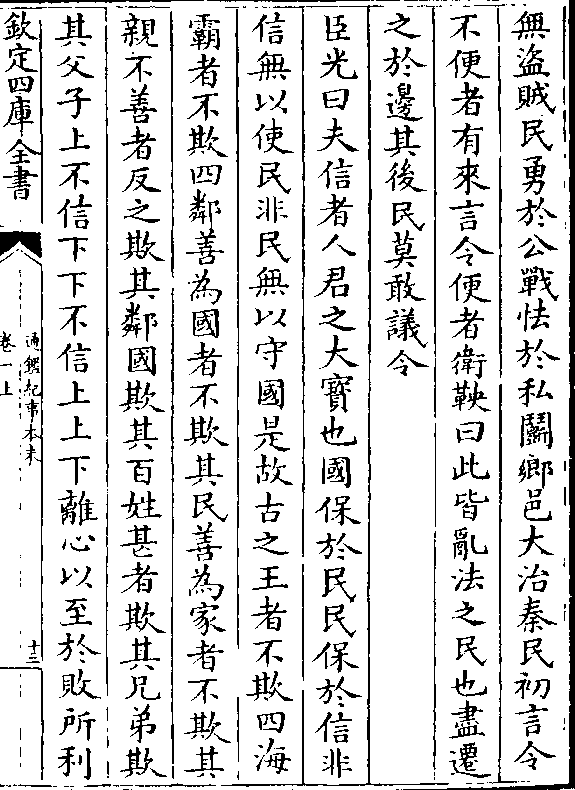 無盗賊民勇於公戰怯於私鬭鄉邑大治秦民初言令
不便者有來言令便者衛鞅曰此皆亂法之民也盡遷
之於邊其後民莫敢議令
臣光曰夫信者人君之大寳也國保於民民保於信非
信無以使民非民無以守國是故古之王者不欺四海
霸者不欺四鄰善為國者不欺其民善為家者不欺其
親不善者反之欺其鄰國欺其百姓甚者欺其兄弟欺
其父子上不信下下不信上上下離心以至於敗所利
欽定四庫全書
通鑑紀事本末
卷一上
十三